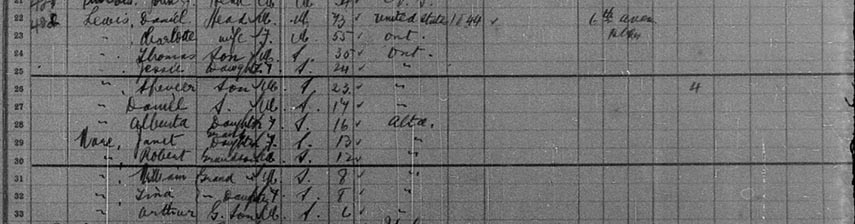 22 Lewis, Daniel Head M. M 73 United States 1844 6th aven
23 " Charlotte wife F. M 55 Ont.
24 " Thomas Son M. S. 35 Ont.
25 " Jessie Daught F. S. 24 "
26 " Spencer Son M. S. 23 " 4
27 " Daniel S. M. S. 17 "
28 " Alberta Daughter F S. 16 Alta.
29 Janet Grand Daughter F. S. 13 "
30 " Robert Grandson M. S. 12 "
31 " William Grand M. S. 8 "
32 " Daughter F S. 8 "
33 " Arthur G. Son M. S. 6 "